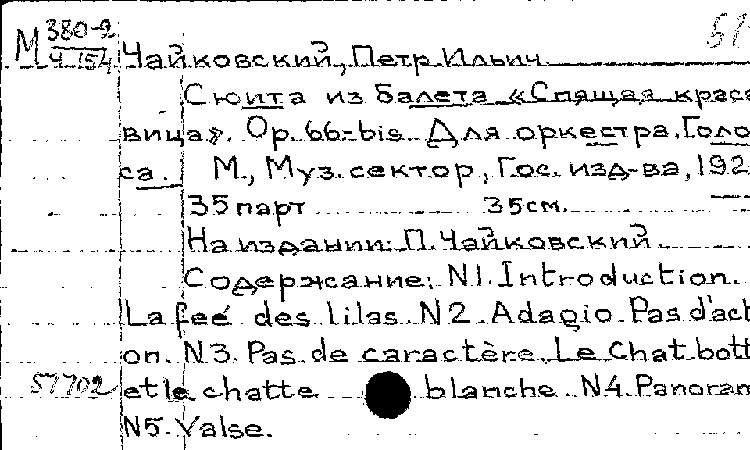 М 380-2
Ч-154 Чайковский, Петр Ильич
Сюита из балета «Спящая краса
вица». Op. 66-bis. Для оркестра. Голо
са. М., Муз. сектор, Гос. изд-ва, 192
35 парт 35см.
На издании: П. Чайковский.
Содержание: N1. Introduction.
La fée des lilas. N2. Adagio. Pas d'act
on. N3. Pas de caractère. Le Chat bott
et la chatte blanche. N4. Panoram
57702
N5. Valse.